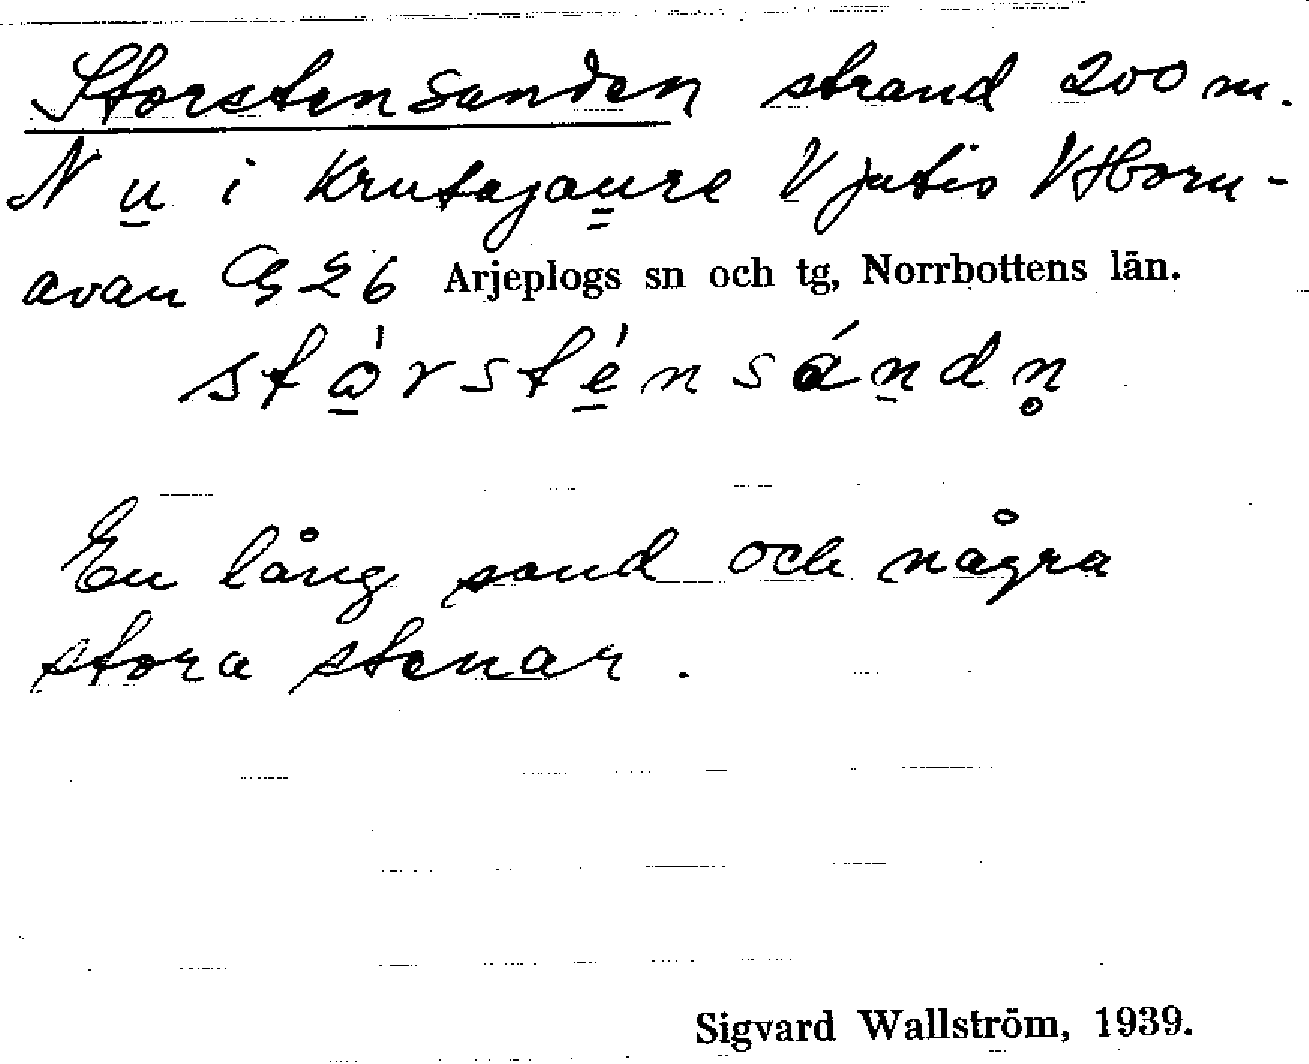 Storstensanden strand 200 m.
N u i Krutajaure V Jutis V Horn-
avan G 26 Arjeplogs sn och tg, Norrbottens län.
stórsténsándn̥
En lång sand och några
stora stenar.
Sigvard Wallström, 1939.